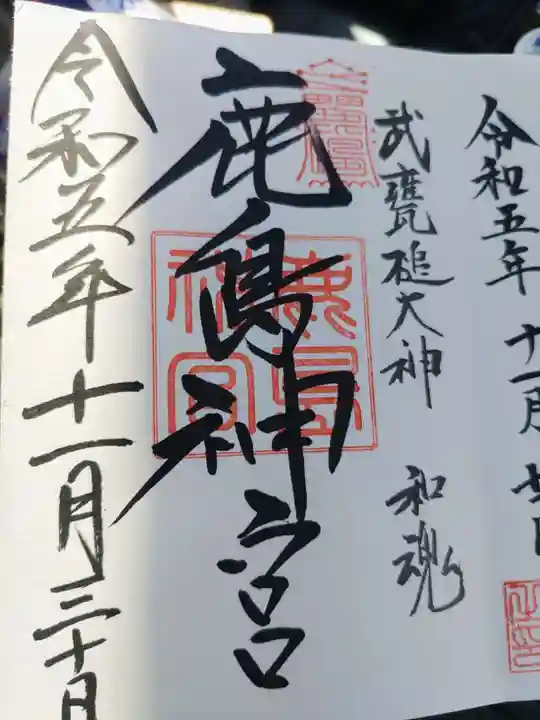 令和五年 十一月 廿日
武甕槌大神 和魂
鹿島神宮
鹿島神宮
令和五年十一月三十日